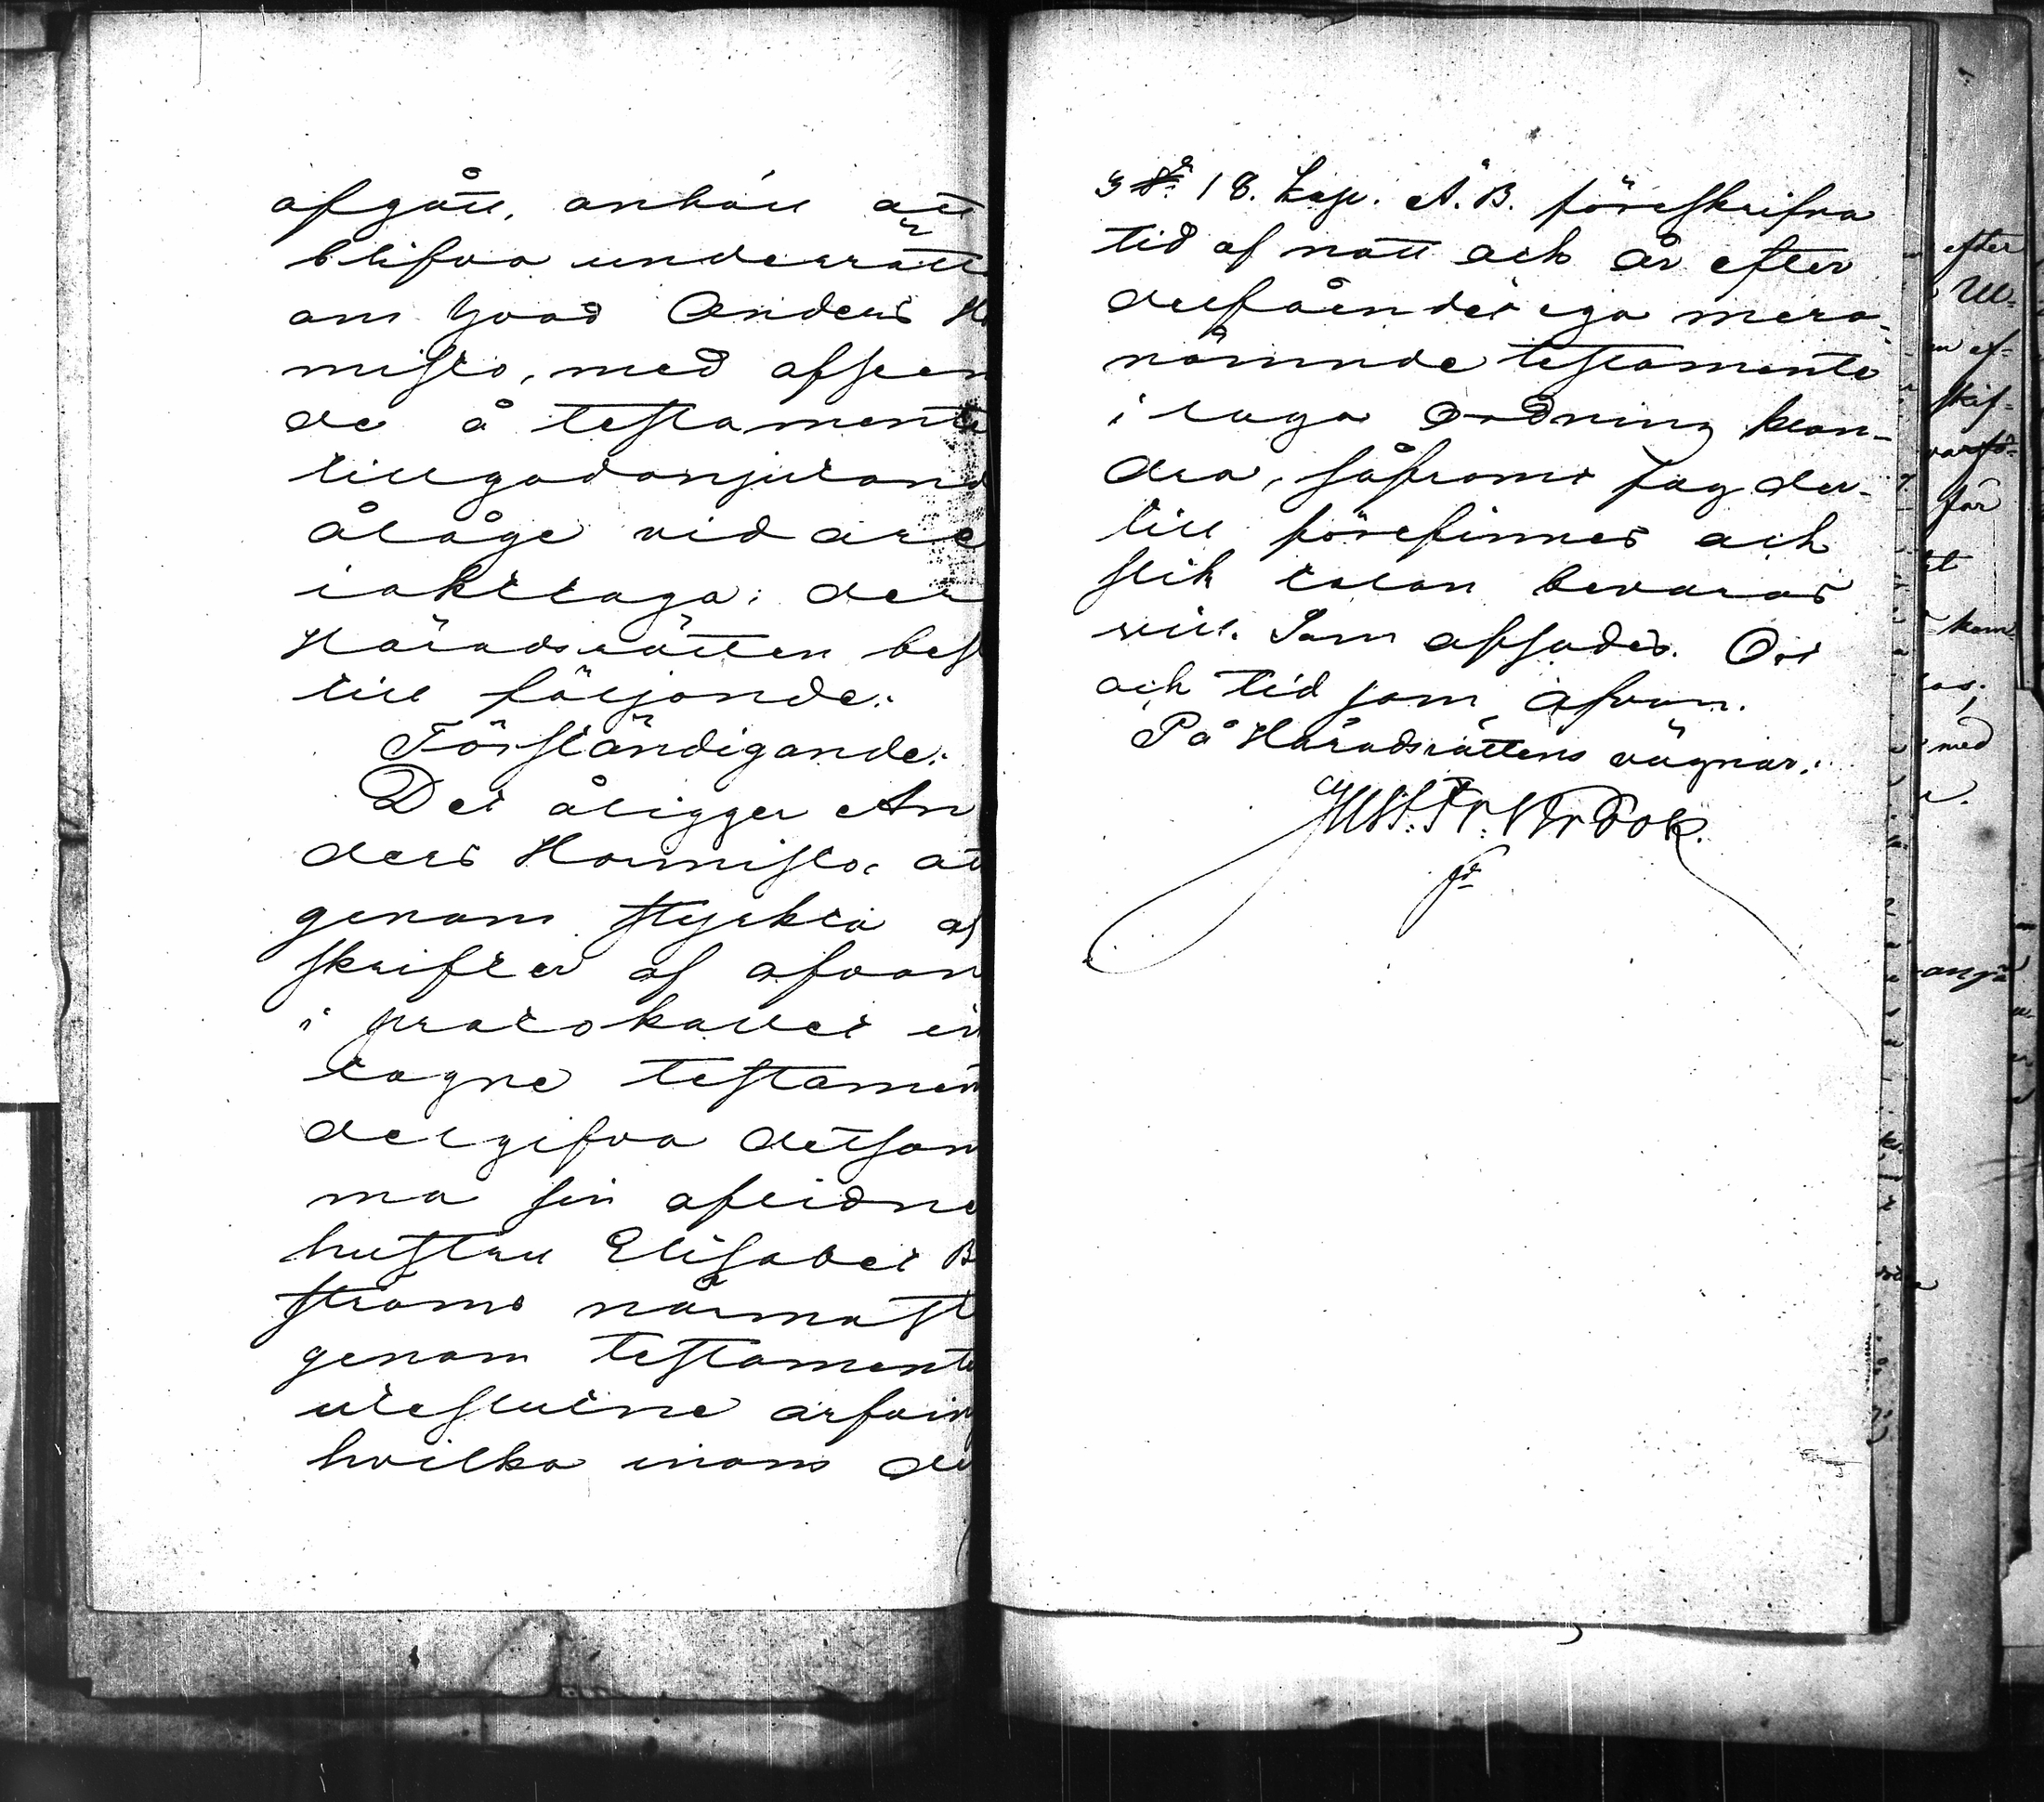 afgått, anhöll att
blifva underrätt
om hvad Anders Ho
misto, med afseen
de å testamente
tillgodonjutand
ålåge vid are
iakttaga; der
Häradsrätten besl
till följande:
Förständigande:
Det åligger An
ders Hormisto, at
genom styrkta af
skrifter af ofvan
i protokollet in
tagne testamen
delgifva detsam
ma sin aflidne
hustru Elisabet B
ströms närmast
genom testamente
uteslutne arfvin
hvilka inom de
3 § 18. Kap. Ä. B. föreskrifna
tid af natt och år efter
delfåendet ega mera-
nämnde testamente
i laga ordning klan-
dra, såframt fog der-
till förefinnes och
slik talan bevaras
vill. Som afsades. Ort
och tid som ofvan.
På Häradsrättens vägnar:
efter
med
för